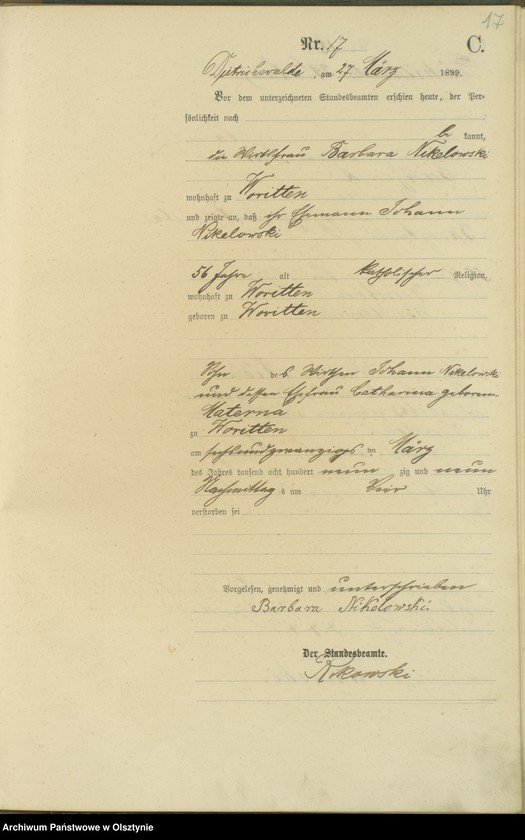 17
Nr. 17 C.
Dietrichswalde, am 27 März 1899.
Vor dem unterzeichneten Standesbeamten erschien heute, der Per-
sönlichkeit nach
be kannt,
die Wirthfrau Barbara Nikelowski
wohnhaft zu Woritten
und zeigte an, daß ihr Ehemann Johann
Nikelowski
56 Jahre alt katholischer Religion,
wohnhaft zu Woritten
geboren zu Woritten
Sohn des Wirthen Johann Nikelowski
und dessen Ehefrau Catharina geborene
Materna
zu Woritten
am sechsundzwanzigsten März
des Jahres tausend acht hundert neun zig und neun
Nachmittags um vier Uhr
verstorben sei
Vorgelesen, genehmigt und unterschrieben
Barbara Nikelowski.
Der Standesbeamte.
Archiwum Państwowe w Olsztynie